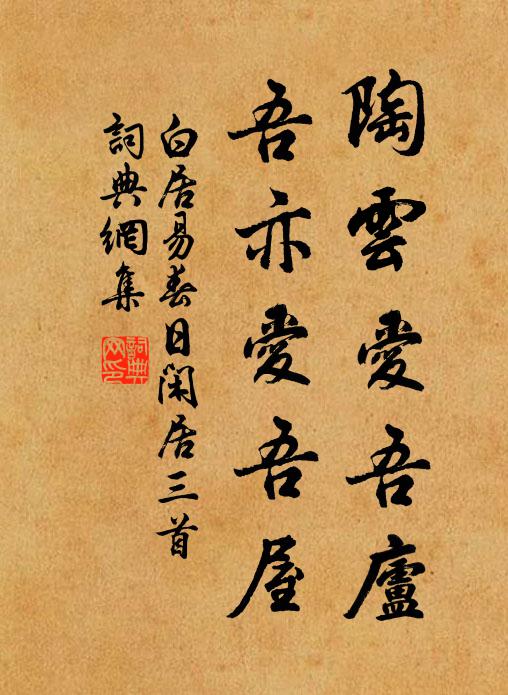 陶雲愛吾廬
吾亦愛吾屋
白居易春日閑居三首
詞典網集
詞典網印